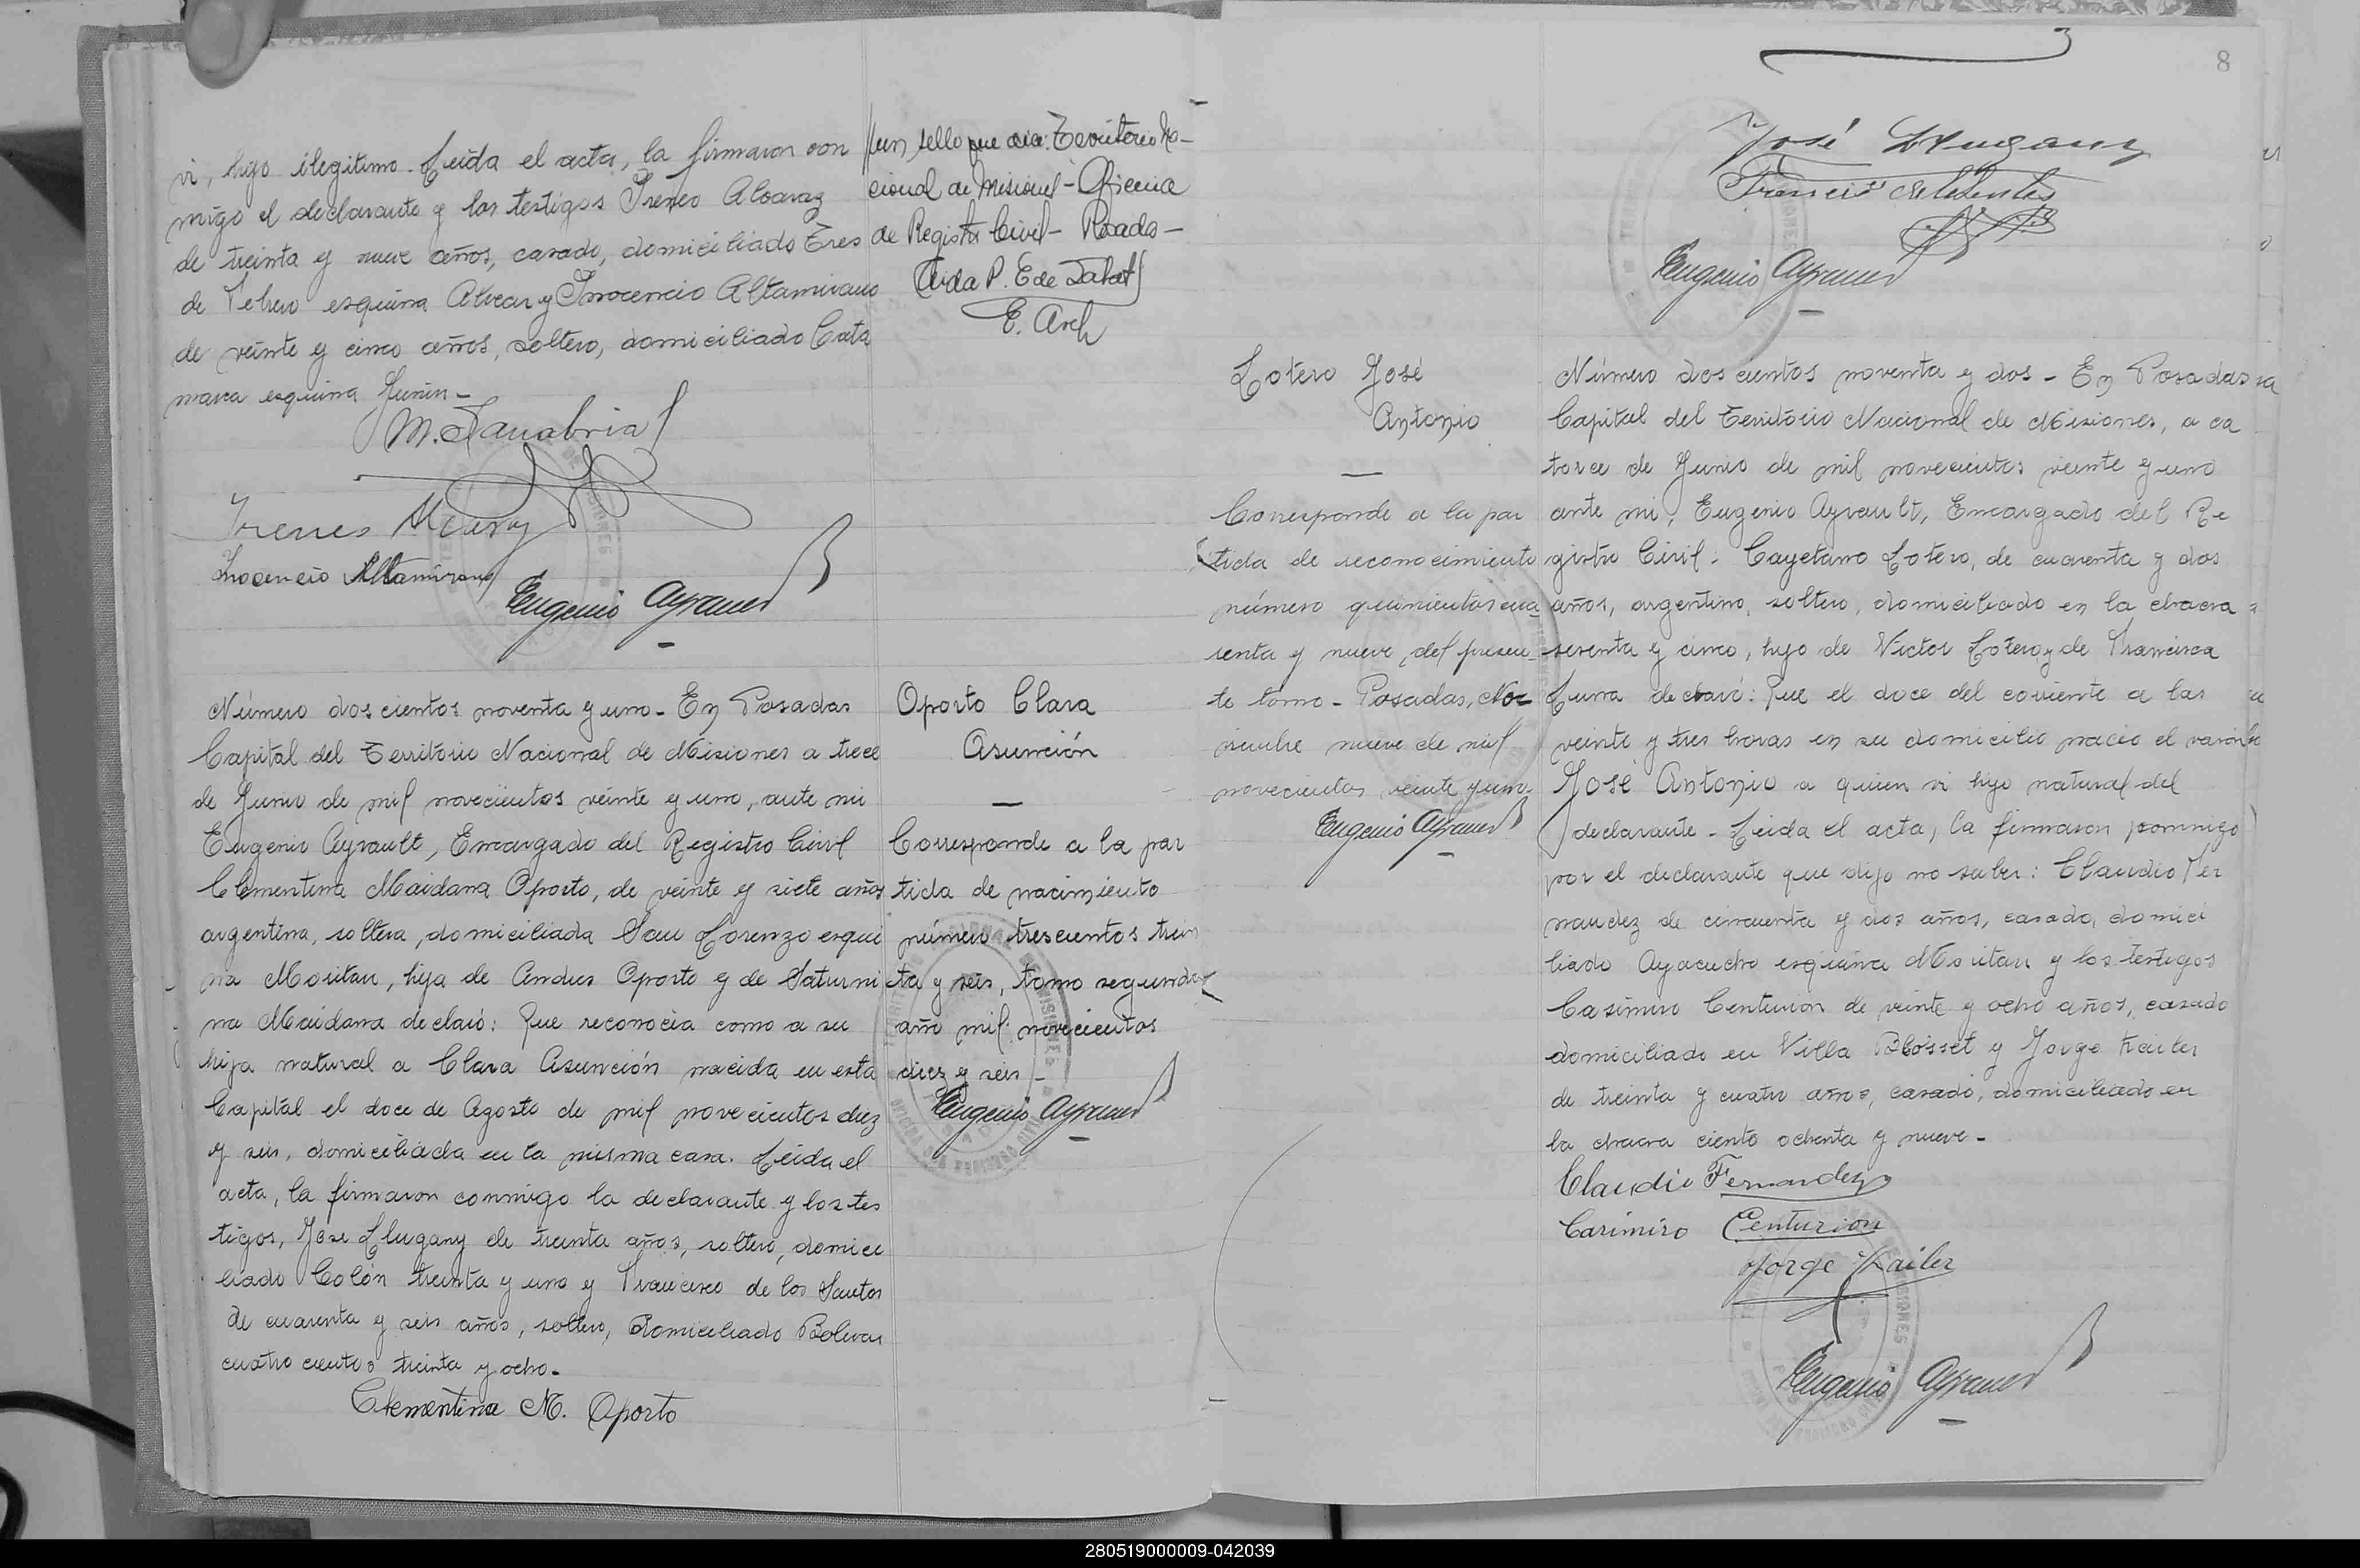 vi, hijo ilegitimo. Leida el acta, la firmaron con
migo el declarante y los testigos Ireneo Alvarez
de treinta y nueve años, casado, domiciliado Tres
de Febrero esquina Alvear y Inocencio Altamirano
de veinte y cinco años, soltero, domiciliado Cata
marca esquina Junin-
M. Sanabria
Inocencio Altamirano
Eugenio Ayrault
un sello que dice: Territorio Na-
cional de Misiones - Oficina
de Registro Civil - Posadas -
E. Arch
Número dos cientos noventa y uno - En Posadas
Capital del Territorio Nacional de Misiones a trece
de Junio de mil novecientos veinte y uno, ante mi
Eugenio Ayrault, Encargado del Registro Civil
Clementina Maidana Oporto, de veinte y siete años
argentina, soltera, domiciliada San Lorenzo esqui
na Moritan, hija de Andres Oporto y de Saturni
na Maidana declaró: Que reconocia como a su
hija natural a Clara Asunción nacida en esta
Capital el doce de Agosto de mil novecientos diez
y seis, domiciliada en la misma casa. Leida el
acta, la firmaron conmigo la declarante y los tes
tigos, Jose Llugany de treinta años, soltero, domici
liado Colón treinta y uno y Francisco de los Santos
de cuarenta y seis años, soltero, domiciliado Bolivar
cuatro cientos treinta y ocho-
Clementina M. Oporto
Oporto Clara
Asunción
Corresponde a la par
tida de nacimiento
número trescientos trein
ta y seis, tomo segundo
año mil novecientos
diez y seis-
Eugenio Ayrault
8
José Llugany
Francisco de los Santos
Eugenio Ayrault
Lotero José
Antonio
Corresponde a la par
tida de reconocimiento
número quinientos cua
renta y nueve del presen-
te tomo - Posadas, No
viembre nueve de mil
novecientos veinte y uno
Eugenio Ayrault
Número dos cientos noventa y dos - En Posadas
Capital del Territorio Nacional de Misiones, a ca
torce de Junio de mil novecientos veinte y uno
ante mi, Eugenio Ayrault, Encargado del Re
gistro Civil: Cayetano Lotero, de cuarenta y dos
años, argentino, soltero, domiciliado en la chacra
sesenta y cinco, hijo de Victor Lotero y de Francisca
Luna declaró: Que el doce del corriente a las
veinte y tres horas en su domicilio nació el varón
José Antonio a quien vi hijo natural del
declarante - Leida el acta, la firmaron conmigo
por el declarante que dijo no saber: Claudio Fer
nandez de cincuenta y dos años, casado, domici
liado Ayacucho esquina Moritan y los testigos
Casimiro Centurion de veinte y ocho años, casado
domiciliado en Villa Blosset y Jorge Kailer
de treinta y cuatro años, casado, domiciliado en
la chacra ciento ochenta y nueve-
Claudio Fernandez
Casimiro Centurion
Jorge Kailer
Eugenio Ayrault
280519000009-042039